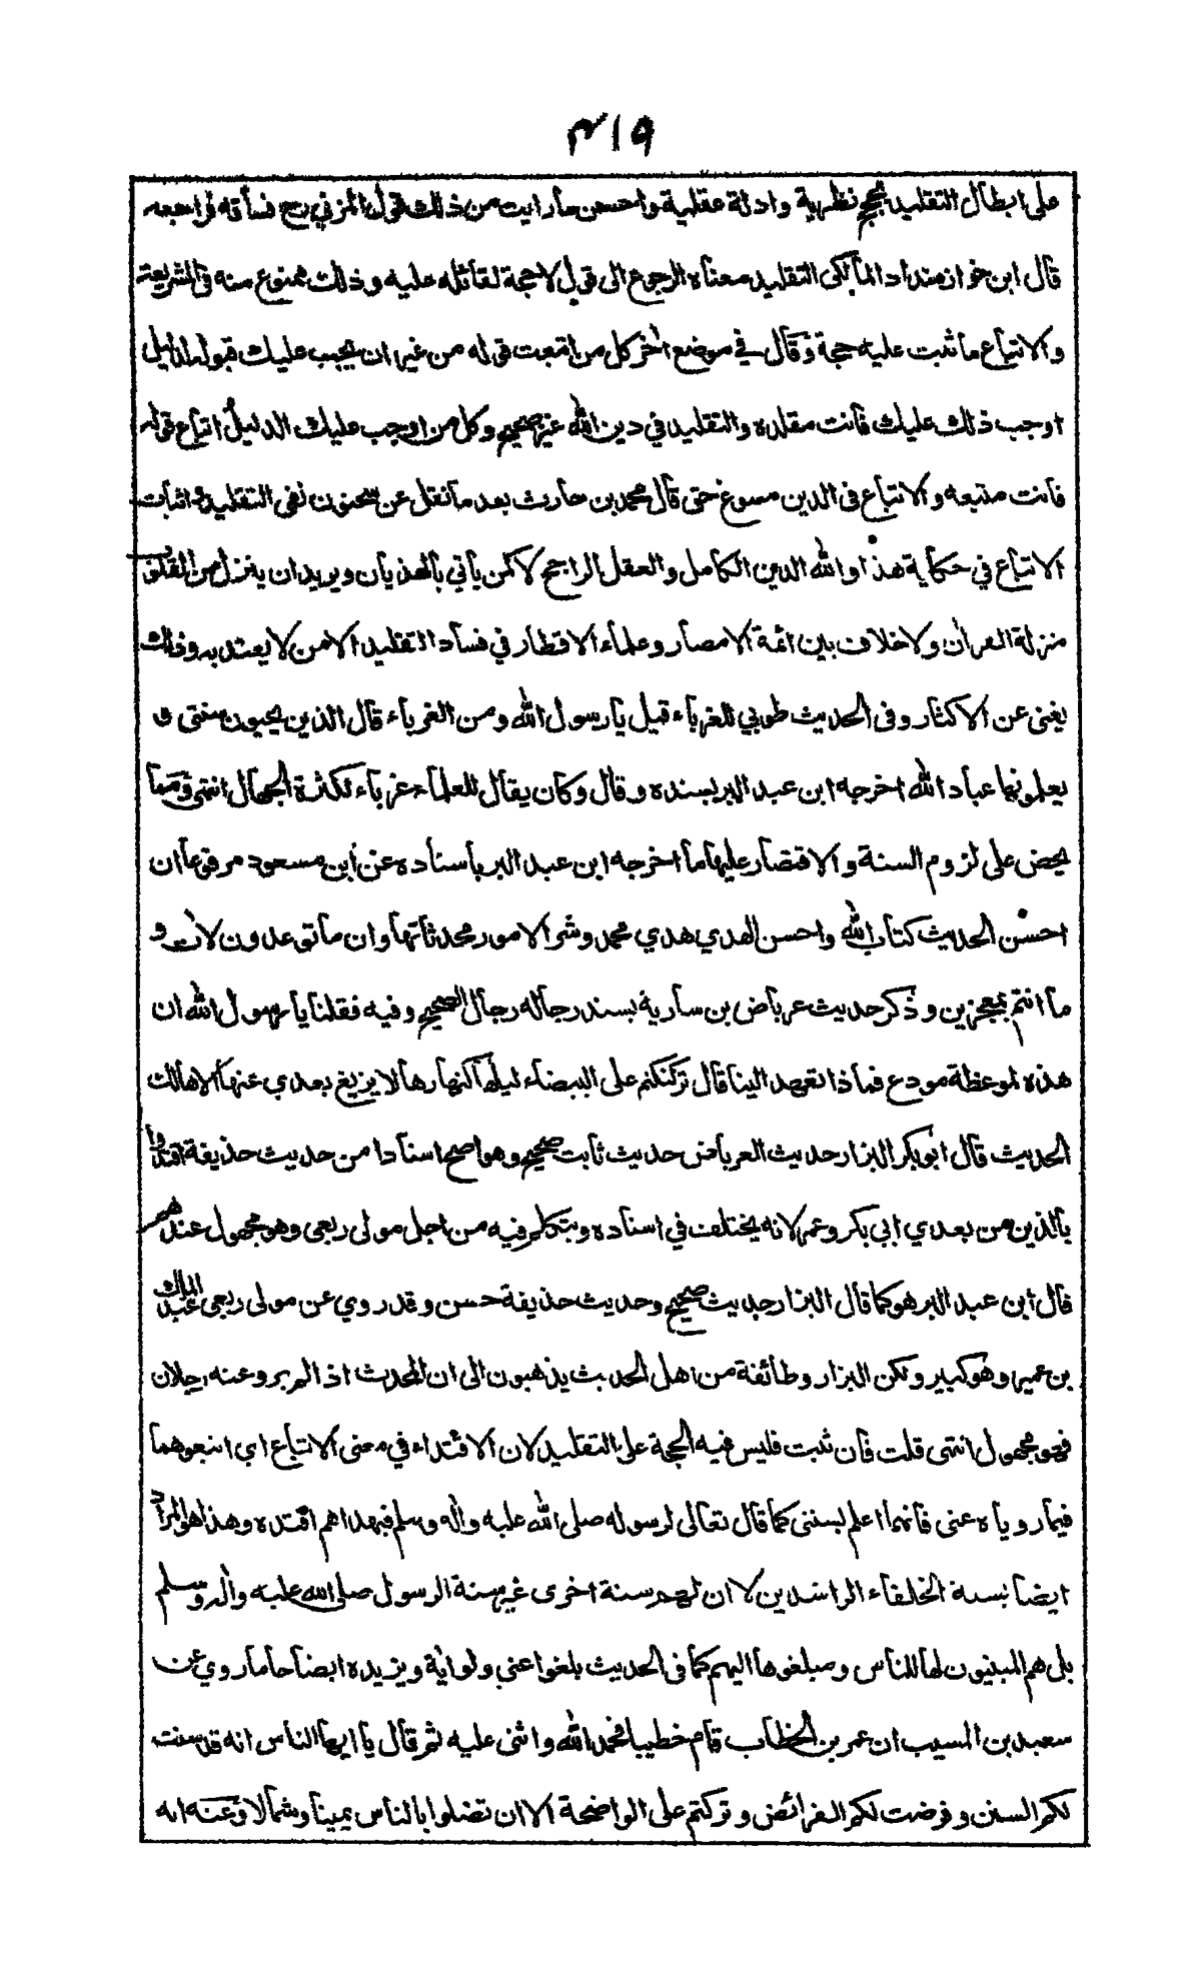 ۴۱۹
على ابطال التقليد بحجج نظرية وادلة عقلية واحسن ما رايت من ذلك قول المزني رح فساقه فراجعه
قال ابن خواز منداد المالكي التقليد معناه الرجوع الى قول لا حجة لقائله عليه وذلك ممنوع منه في الشريعة
والاتباع ما ثبت عليه حجة وقال في موضع اخر كل من اتبعت قوله من غير ان يجب عليك قبوله لدليل
اوجب ذلك عليك فانت مقلده والتقليد في دين الله غير صحيح وكل من اوجب عليك الدليل اتباع قوله
فانت متبعه والاتباع في الدين مسوغ حتى قال محمد بن حارث بعد ما نقل عن سحنون نفي التقليد واثبات
الاتباع في حكاية هذا والله الدين الكامل والعقل الراجح لا كمن ياتي بالهذيان ويريد ان ينزل من القلوب
منزلة القران ولا خلاف بين ائمة الامصار وعلماء الاقطار في فساد التقليد الا من لا يعتد به وذلك
يغني عن الاكثار وفي الحديث طوبي للغرباء قيل يا رسول الله ومن الغرباء قال الذين يحيون سنتي و
يعلمونها عباد الله اخرجه ابن عبد البر بسنده وقال وكان يقال للعلماء غرباء لكثرة الجهال انتهى ومما
يحض على لزوم السنة والاقتصار عليها ما اخرجه ابن عبد البر باسناده عن ابن مسعود مرفوعا ان
احسن الحديث كتاب الله واحسن الهدي هدي محمد وشر الامور محدثاتها وان ما توعدون لات و
ما انتم بمعجزين وذكر حديث عرباض بن سارية بسند رجاله رجال الصحيح وفيه فقلنا يا رسول الله ان
هذه لموعظة مودع فماذا تعهد الينا قال تركتكم على البيضاء ليلها كنهارها لا يزيغ بعدي عنها الا هالك
الحديث قال ابو بكر البزار حديث العرباض حديث ثابت صحيح وهو اصح اسنادا من حديث حذيفة اقتدوا
بالذين من بعدي ابي بكر وعمر لانه يختلف في اسناده ويتكلم فيه من اجل مولى ربعي وهو مجهول عندهم
قال ابن عبد البر هو كما قال البزار حديث صحيح وحديث حذيفة حسن وقد روي عن مولى ربعي عبد الملك
بن عمير وهو كبير ولكن البزار وطائفة من اهل الحديث يذهبون الى ان المحدث اذا لم يرو عنه رجلان
فهو مجهول انتهى قلت فان ثبت فليس فيه الحجة على التقليد لان الاقتداء في معنى الاتباع اي اتبعوهما
فيما رويا ه عني فانهما اعلم بسنتي كما قال تعالى لرسوله صلى الله عليه واله وسلم فبهداهم اقتده وهذا هو المراد
ايضا بسنة الخلفاء الراشدين لا ان لهم سنة اخرى غير سنة الرسول صلى الله عليه واله وسلم
بل هم المبنيون لها للناس ومبلغوها اليهم كما في الحديث بلغوا عني ولو اية ويزيده ايضاحا ما روي عن
سعيد بن المسيب ان عمر بن الخطاب قام خطيبا فحمد الله واثنى عليه ثم قال يا ايها الناس انه قد سنت
لكم السنن وفرضت لكم الفرائض وتركتم على الواضحة الا ان تضلوا بالناس يمينا وشمالا وعنه انه